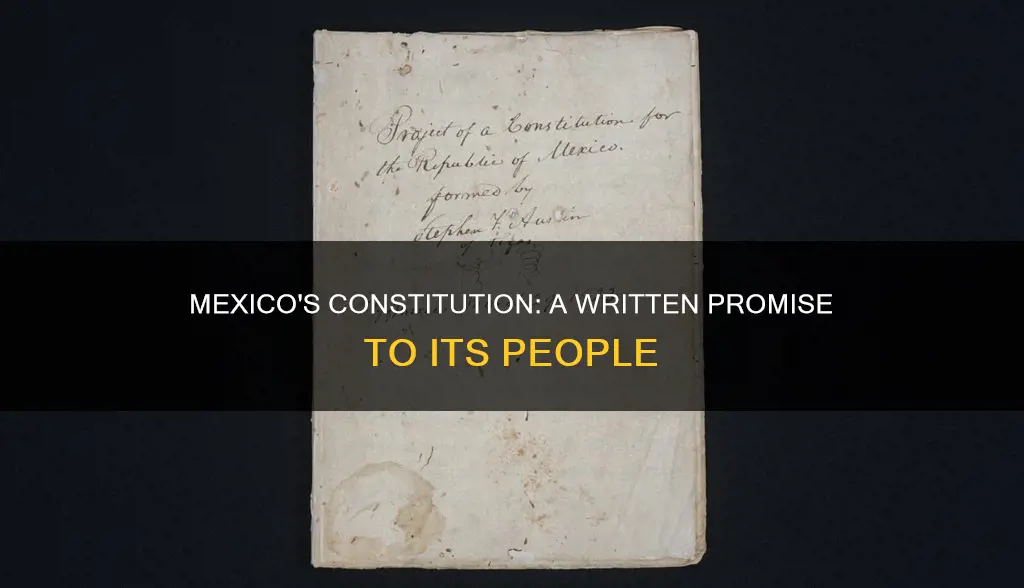 Project of a Constitution for
the Republic of Mexico.
formed by
Stephen F. Austin
of Texas
MEXICO'S CONSTITUTION: A WRITTEN PROMISE
TO ITS PEOPLE